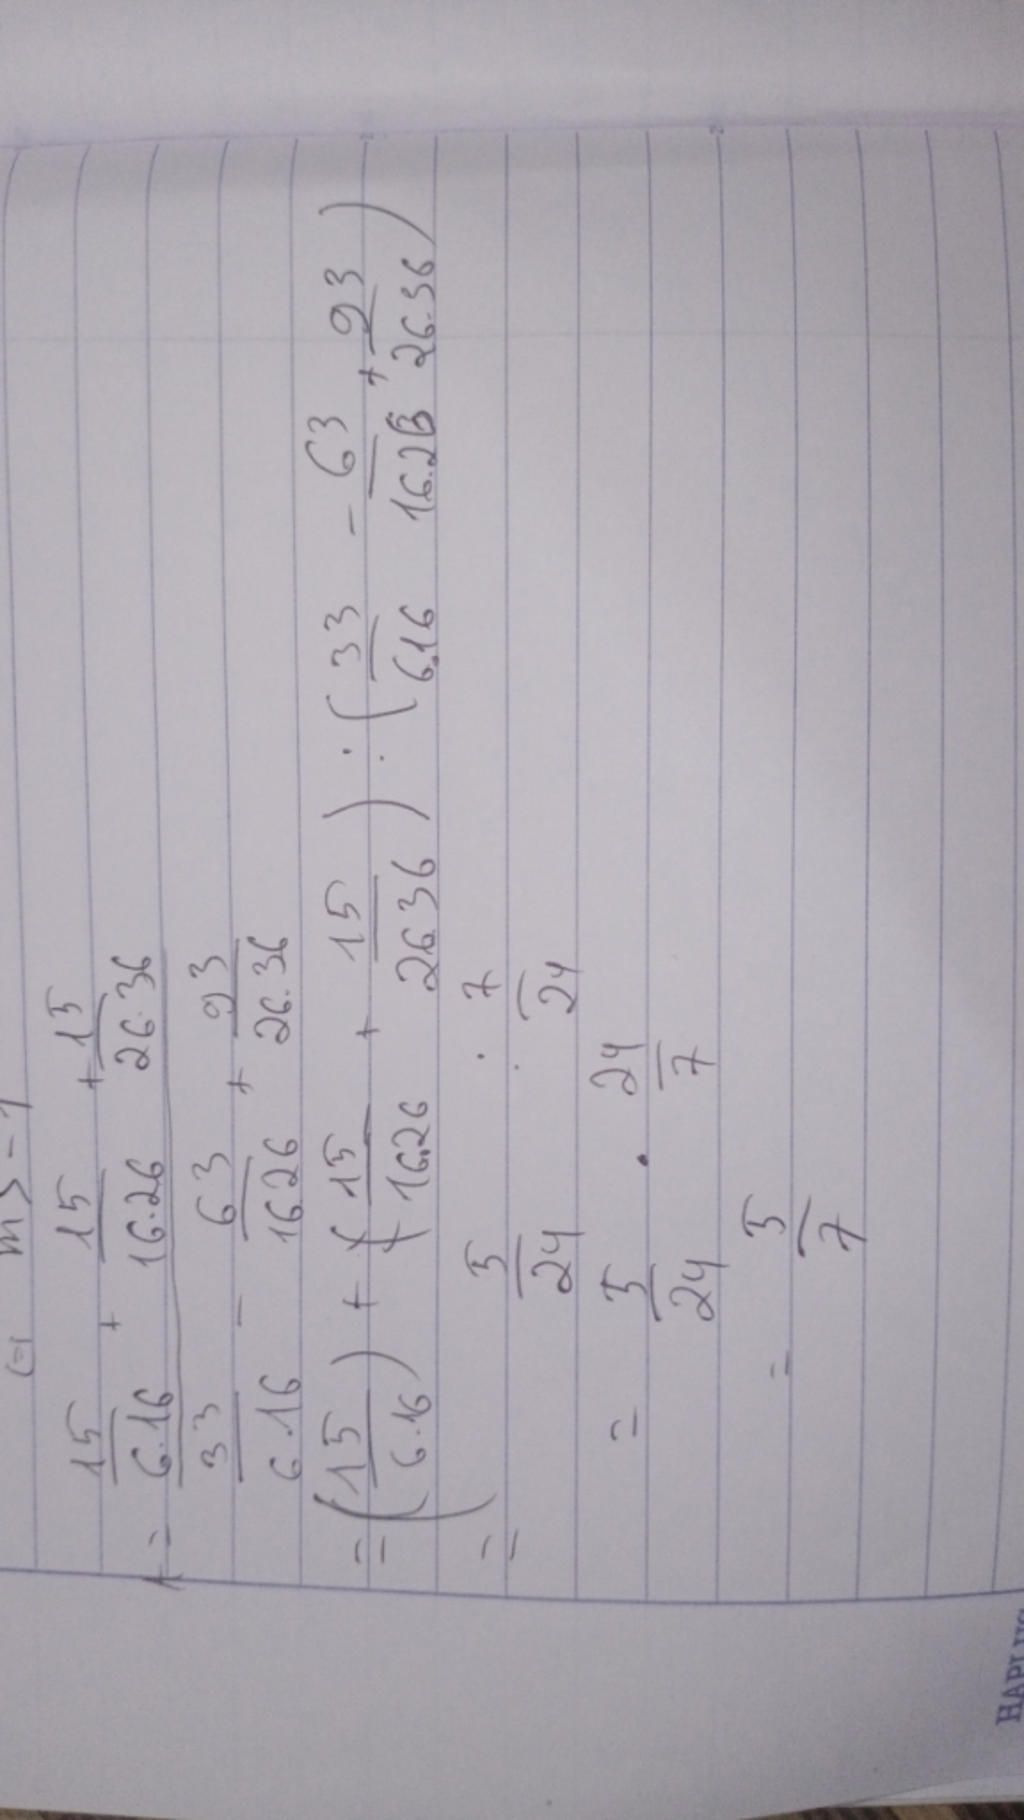 15/6.16 + 15/16.26 + 15/26.36
33/6.16 - 63/16.26 + 93/26.36
= (15/6.16) + (15/16.26 + 15/26.36) : (33/6.16 - 63/16.26 + 93/26.36)
= 5/24 : 7/24
= 5/24 . 24/7
= 5/7
HAPLUS